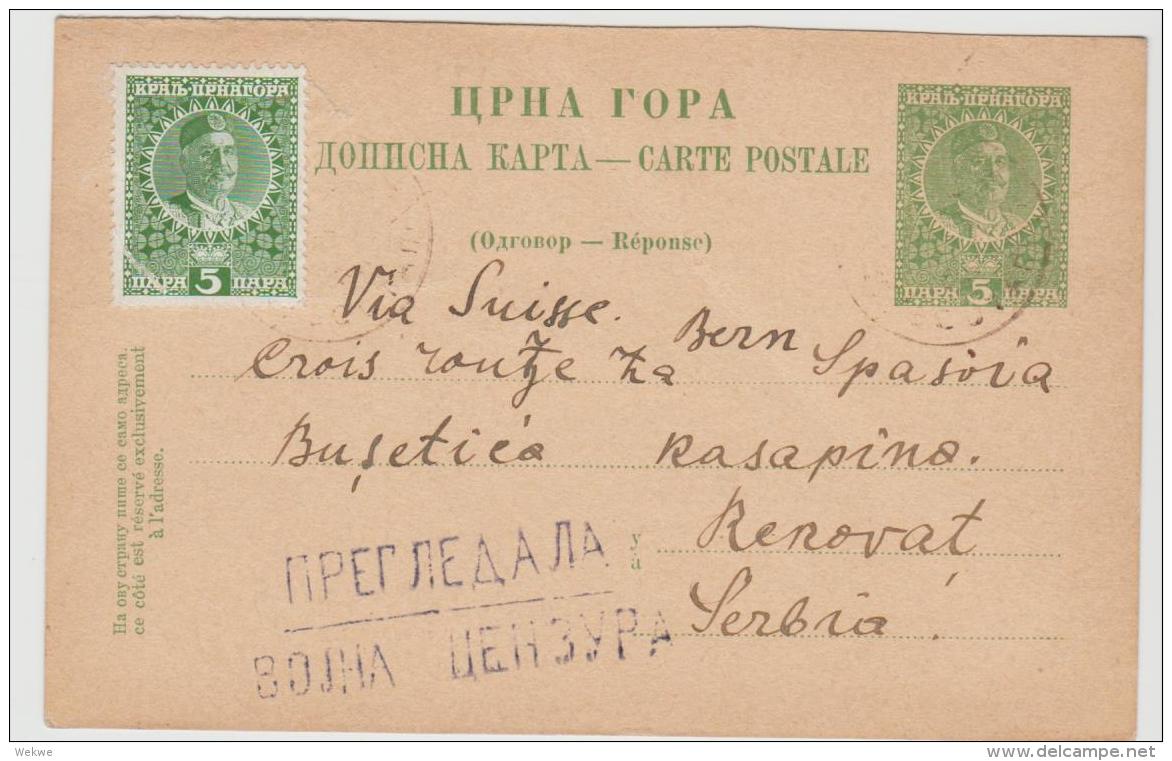 КРАЉ. ЦРНАГОРА
ПАРА 5 ПАРА
ЦРНА ГОРА
ДОПИСНА КАРТА — CARTE POSTALE
(Одговор — Réponse)
КРАЉ. ЦРНАГОРА
ПАРА 5 ПАРА
Via Suisse.
Bern
Crois za Spasoia
Bușetića Kasapina.
у
à
Serbia.
На ову страну пише се само адреса.
ce côté est réservé exclusivement
à l'adresse.
ПРЕГЛЕДАЛА
ВОЈНА ЦЕНЗУРА
Wekwe
www.delcampe.net